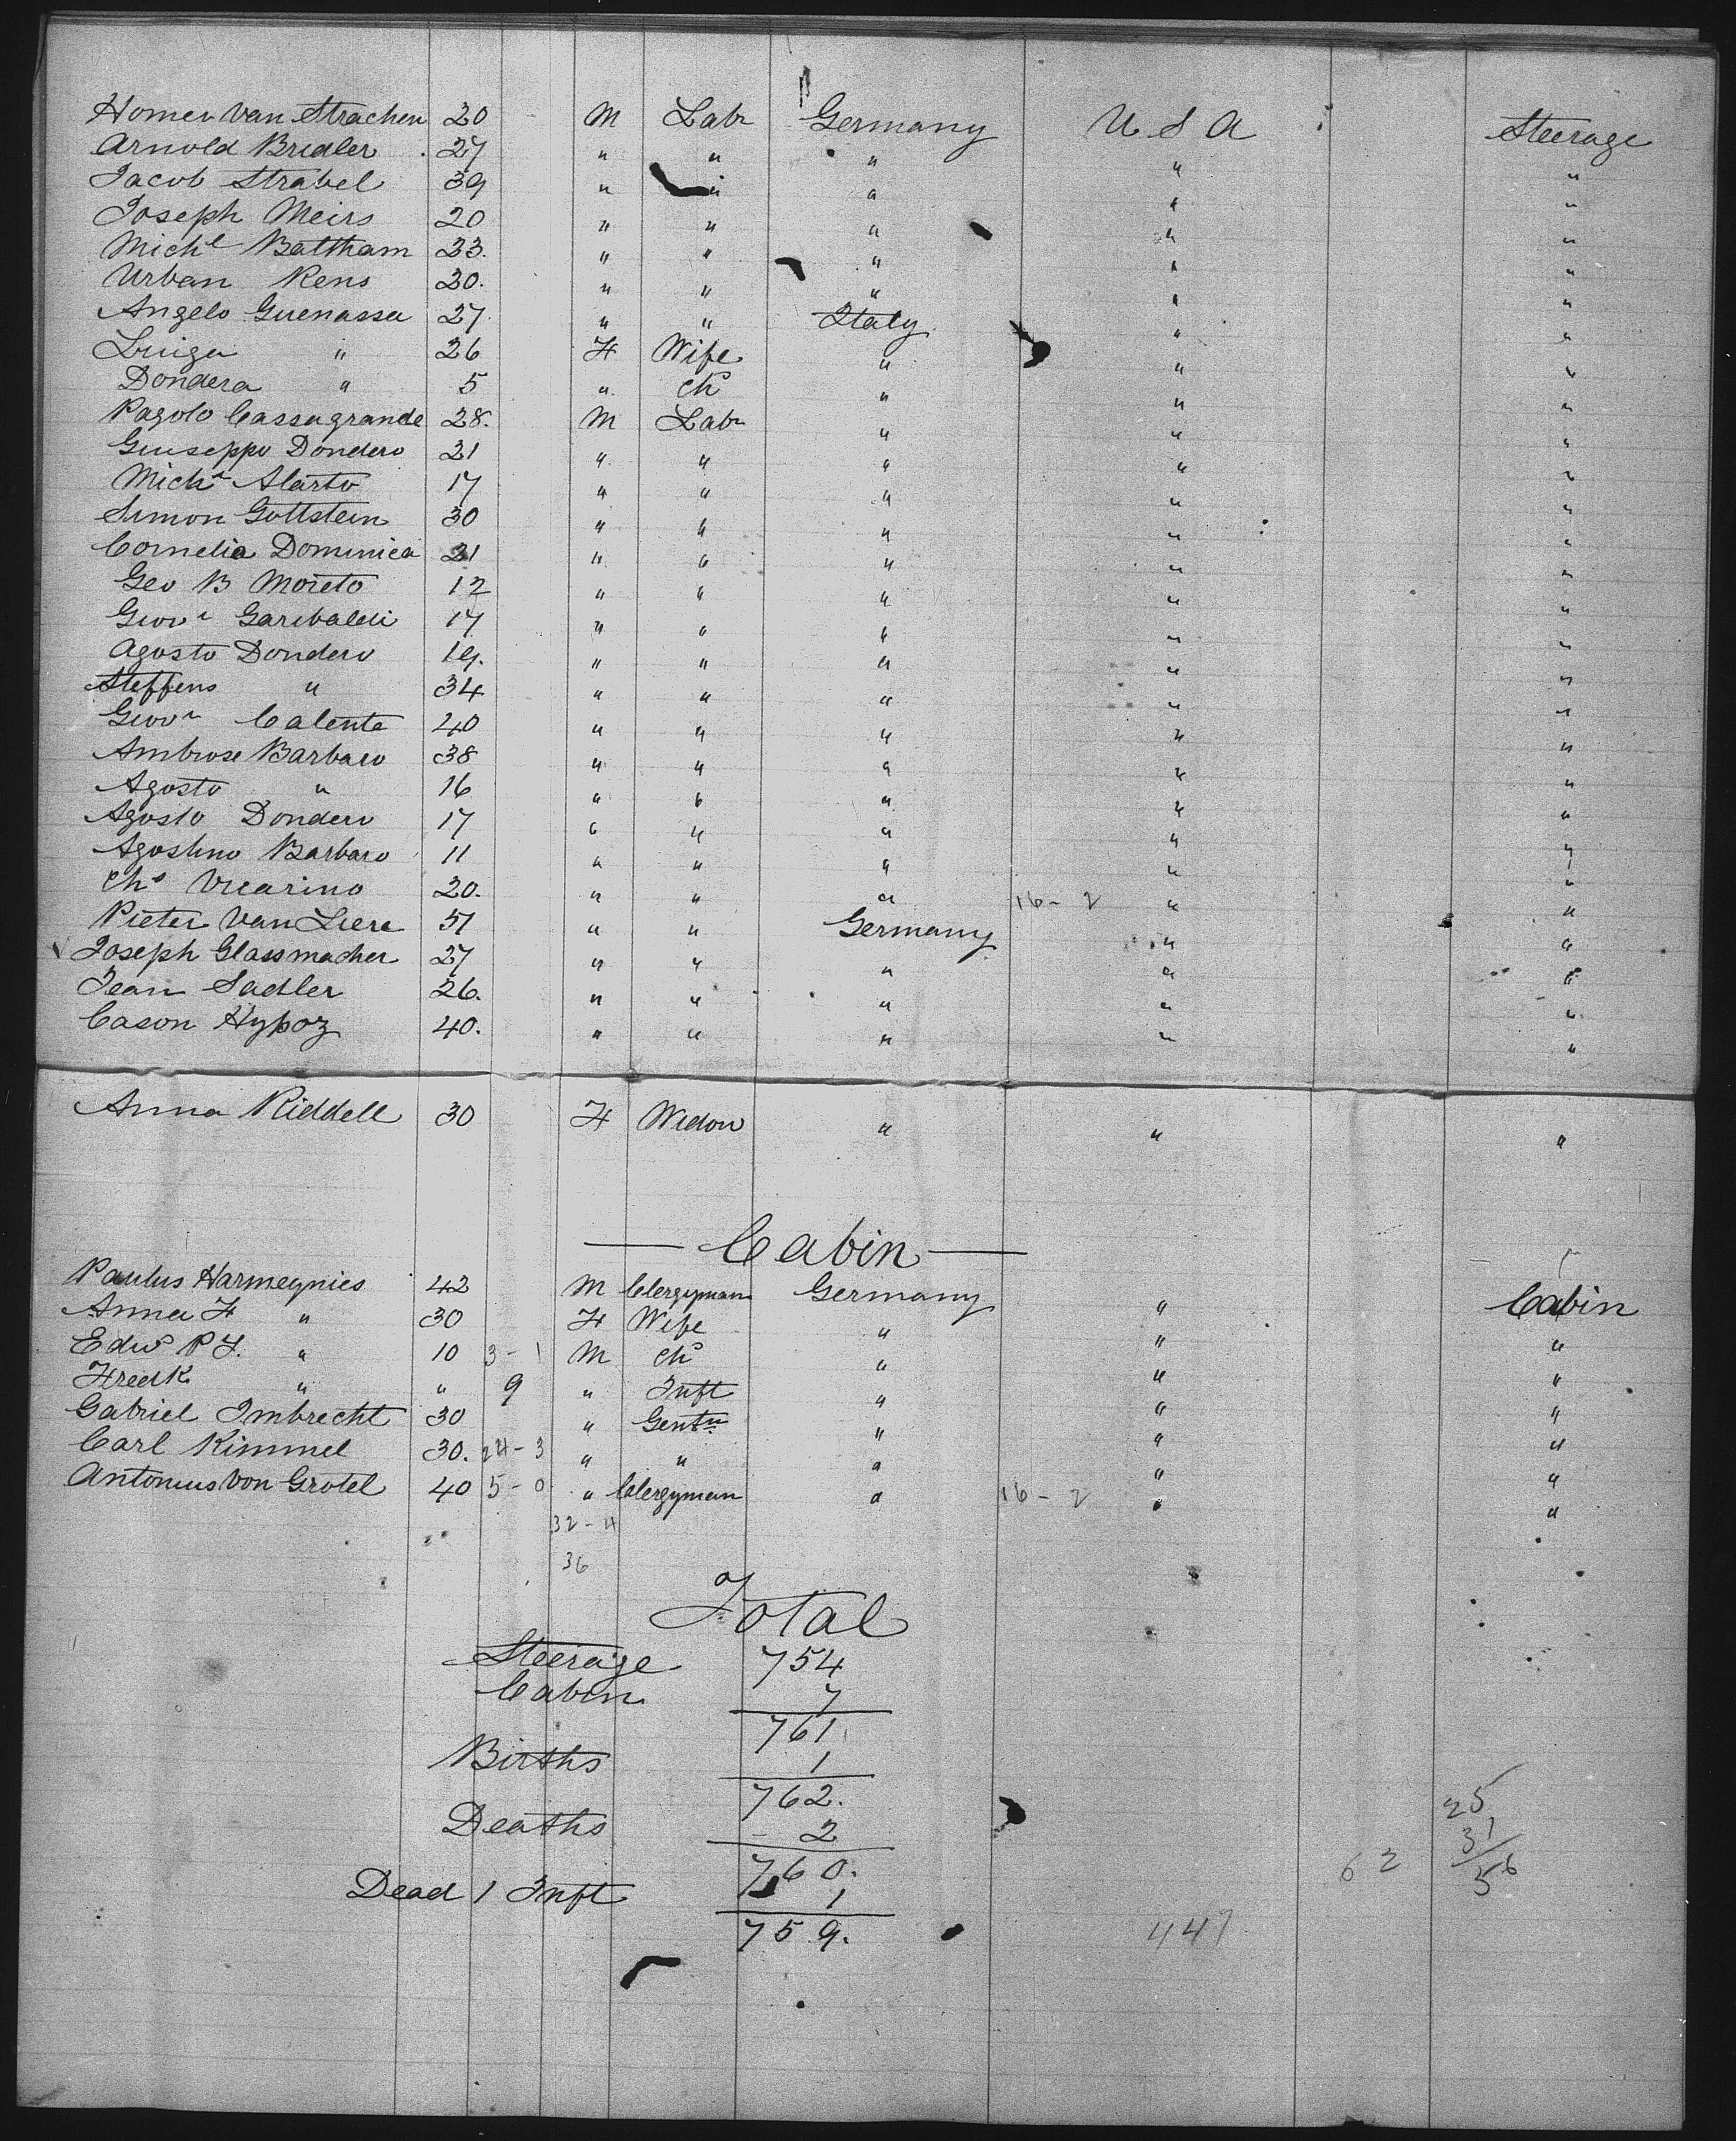 Homer Van Strachen 20 M Labr Germany U S A Steerage
Arnold Bredler 27 " " " " "
Jacob Strabel 39 " " " " "
Joseph Meirs 20 " " " " "
Michl Baltham 23. " " " " "
Urban Rens 30. " " " " "
Angelo Guenassa 27 " " Italy " "
Luiga " 26 F Wife " " "
Dondera " 5 " Chd " " "
Pagolo Cassagrande 28. M Labr " " "
Giuseppo Dondero 21 " " " " "
Michl Alarto 17 " " " " "
Simon Gottstein 30 " " " " "
Cornelia Dominica 21 " " " " "
Geo B Moreto 12 " " " " "
Giovi Garibaldi 17 " " " " "
Agosto Dondero 19. " " " " "
Steffens " 34 " " " " "
Giovi Calente 40 " " " " "
Ambrose Barbaro 38 " " " " "
Agosto " 16 " " " " "
Agosto Dondero 17 " " " " "
Agostino Barbaro 11 " " " " "
Chs Vicarino 20. " " " 16 - 2 " "
Pieter Van Liere 51 " " Germany " "
Joseph Glassmacher 27 " " " " "
Jean Sadler 26. " " " " "
Cason Hypoz 40. " " " " "
Anna Riddell 30 F Widow " " "
Cabin
Paulus Harmegnies 42 M Clergyman Germany " Cabin
Anna F " 30 F Wife " " "
Edwd P F. " 10 3 - 1 M Chd " " "
Fredk " " 9 " Inft " " "
Gabriel Imbrecht 30 " Gentn " " "
Carl Kimmel 30. 24 - 3 " " " " "
Antonius Von Grotel 40 5 - 0 " Clergyman " 16 - 2 " "
32 - 4
36
Total
Steerage 754
Cabin 7
761
Births 1
762.
Deaths 2
760.
Dead 1 Inft 1
759.
25
31
56
62
447